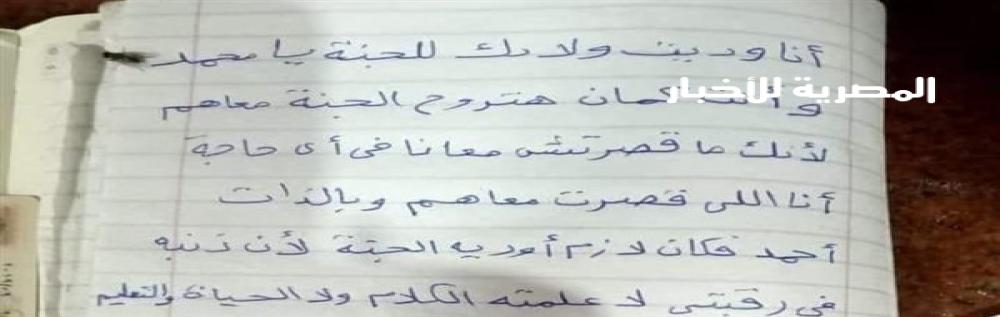 أنا وديت ولادك للجنة يا محمد
وانت كمان هتروح الجنة معاهم
المصرية للأخبار
لأنك ما قصرتش معانا فى أى حاجة
أنا اللى قصرت معاهم وبالذات
أحمد فكان لازم أوديه الجنة لأن ذنبه
فى رقبتى لا علمته الكلام ولا الحياة والتعليم